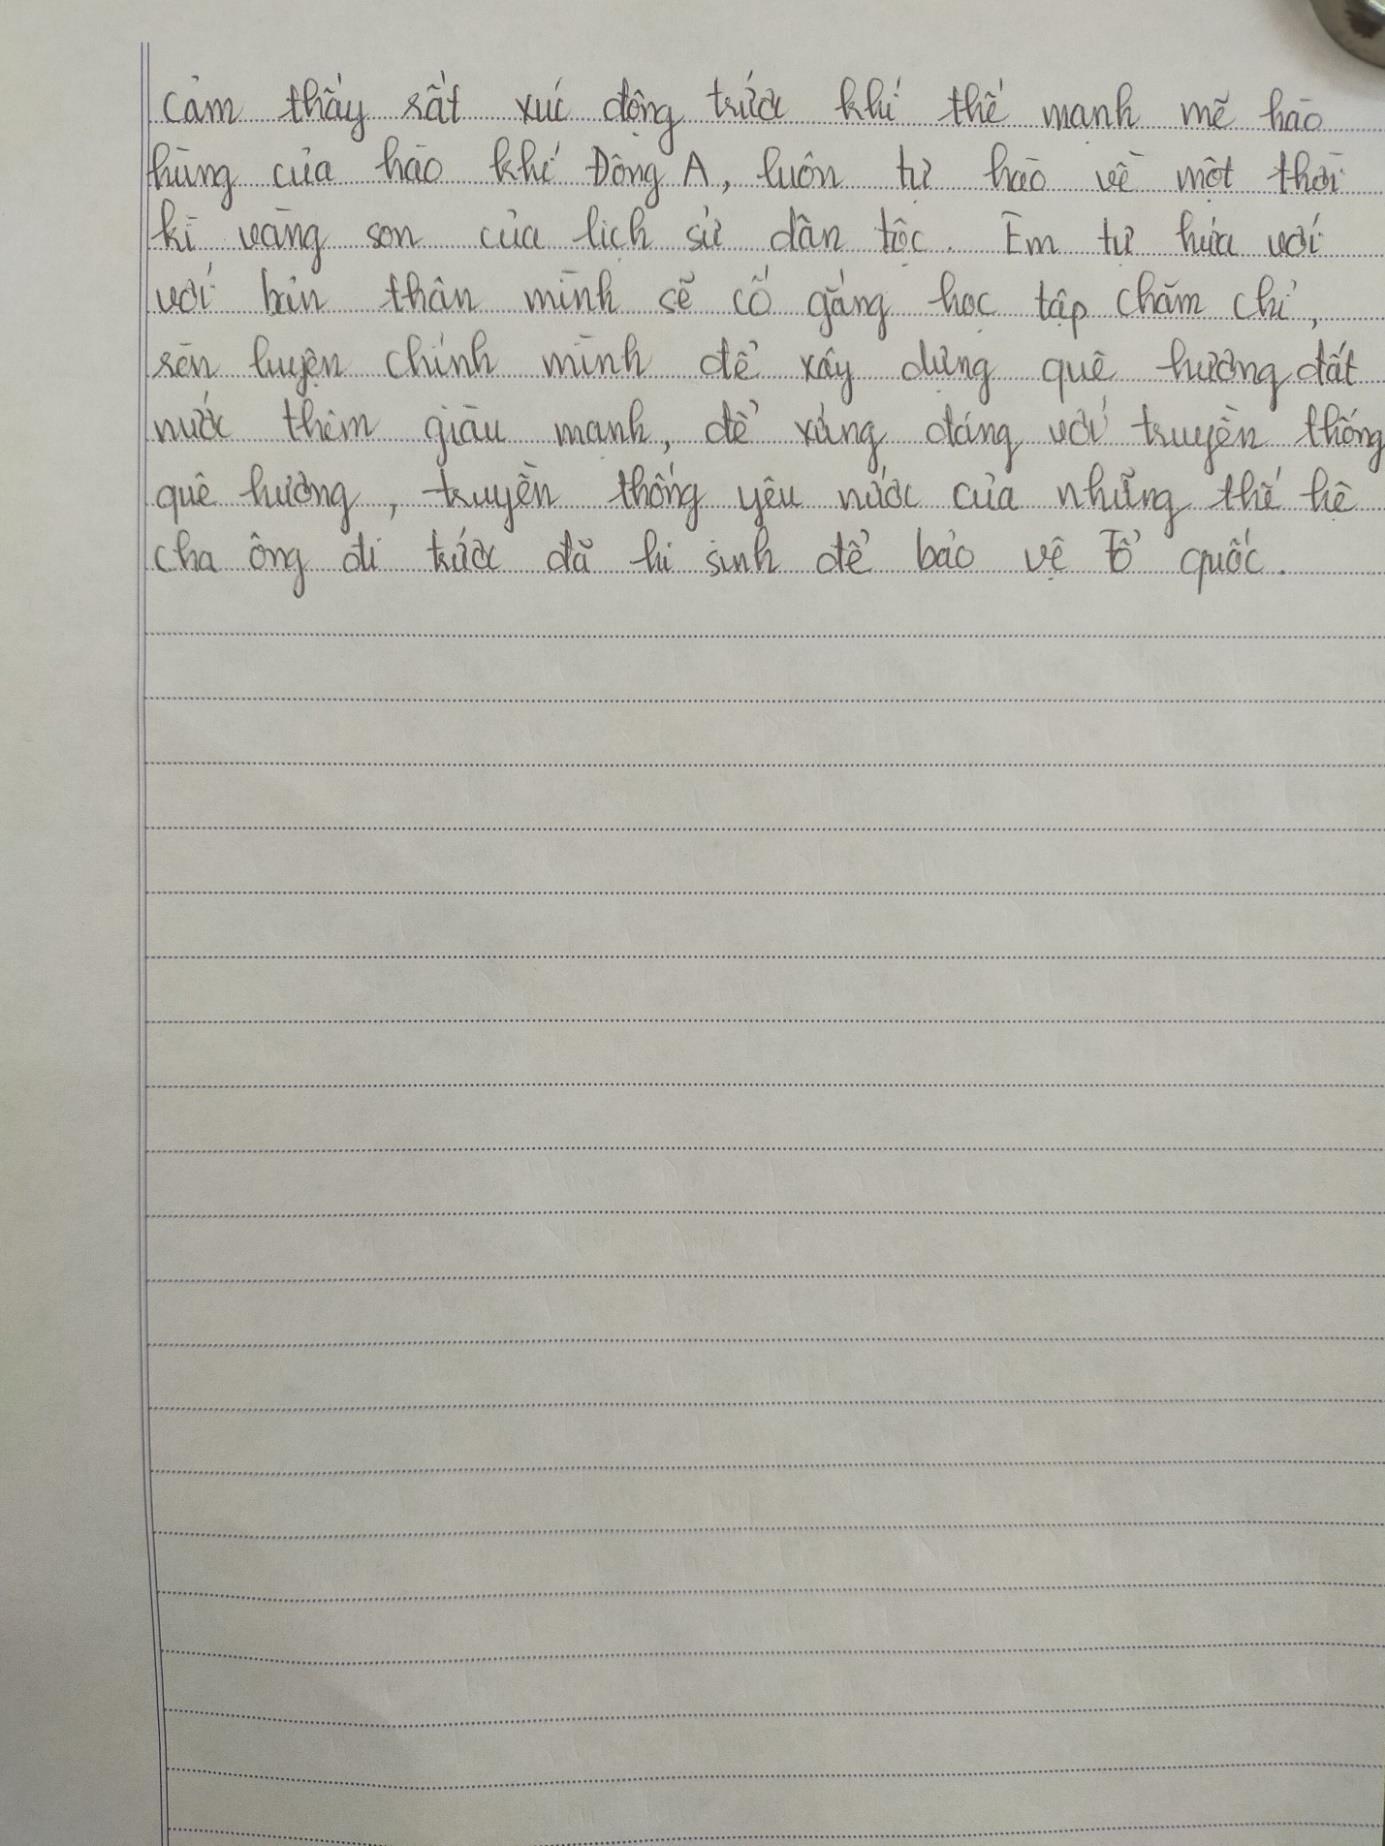 cảm thấy rất xúc động trước khí thế mạnh mẽ hào
hùng của hào khí Đông A, luôn tự hào về một thời
kì vàng son của lịch sử dân tộc. Em tự hứa với
với bản thân mình sẽ cố gắng học tập chăm chỉ,
rèn luyện chính mình để xây dựng quê hương, đất
nước thêm giàu mạnh, để xứng đáng với truyền thống
quê hương, truyền thống yêu nước của những thế hệ
cha ông đi trước đã hi sinh để bảo vệ Tổ quốc.